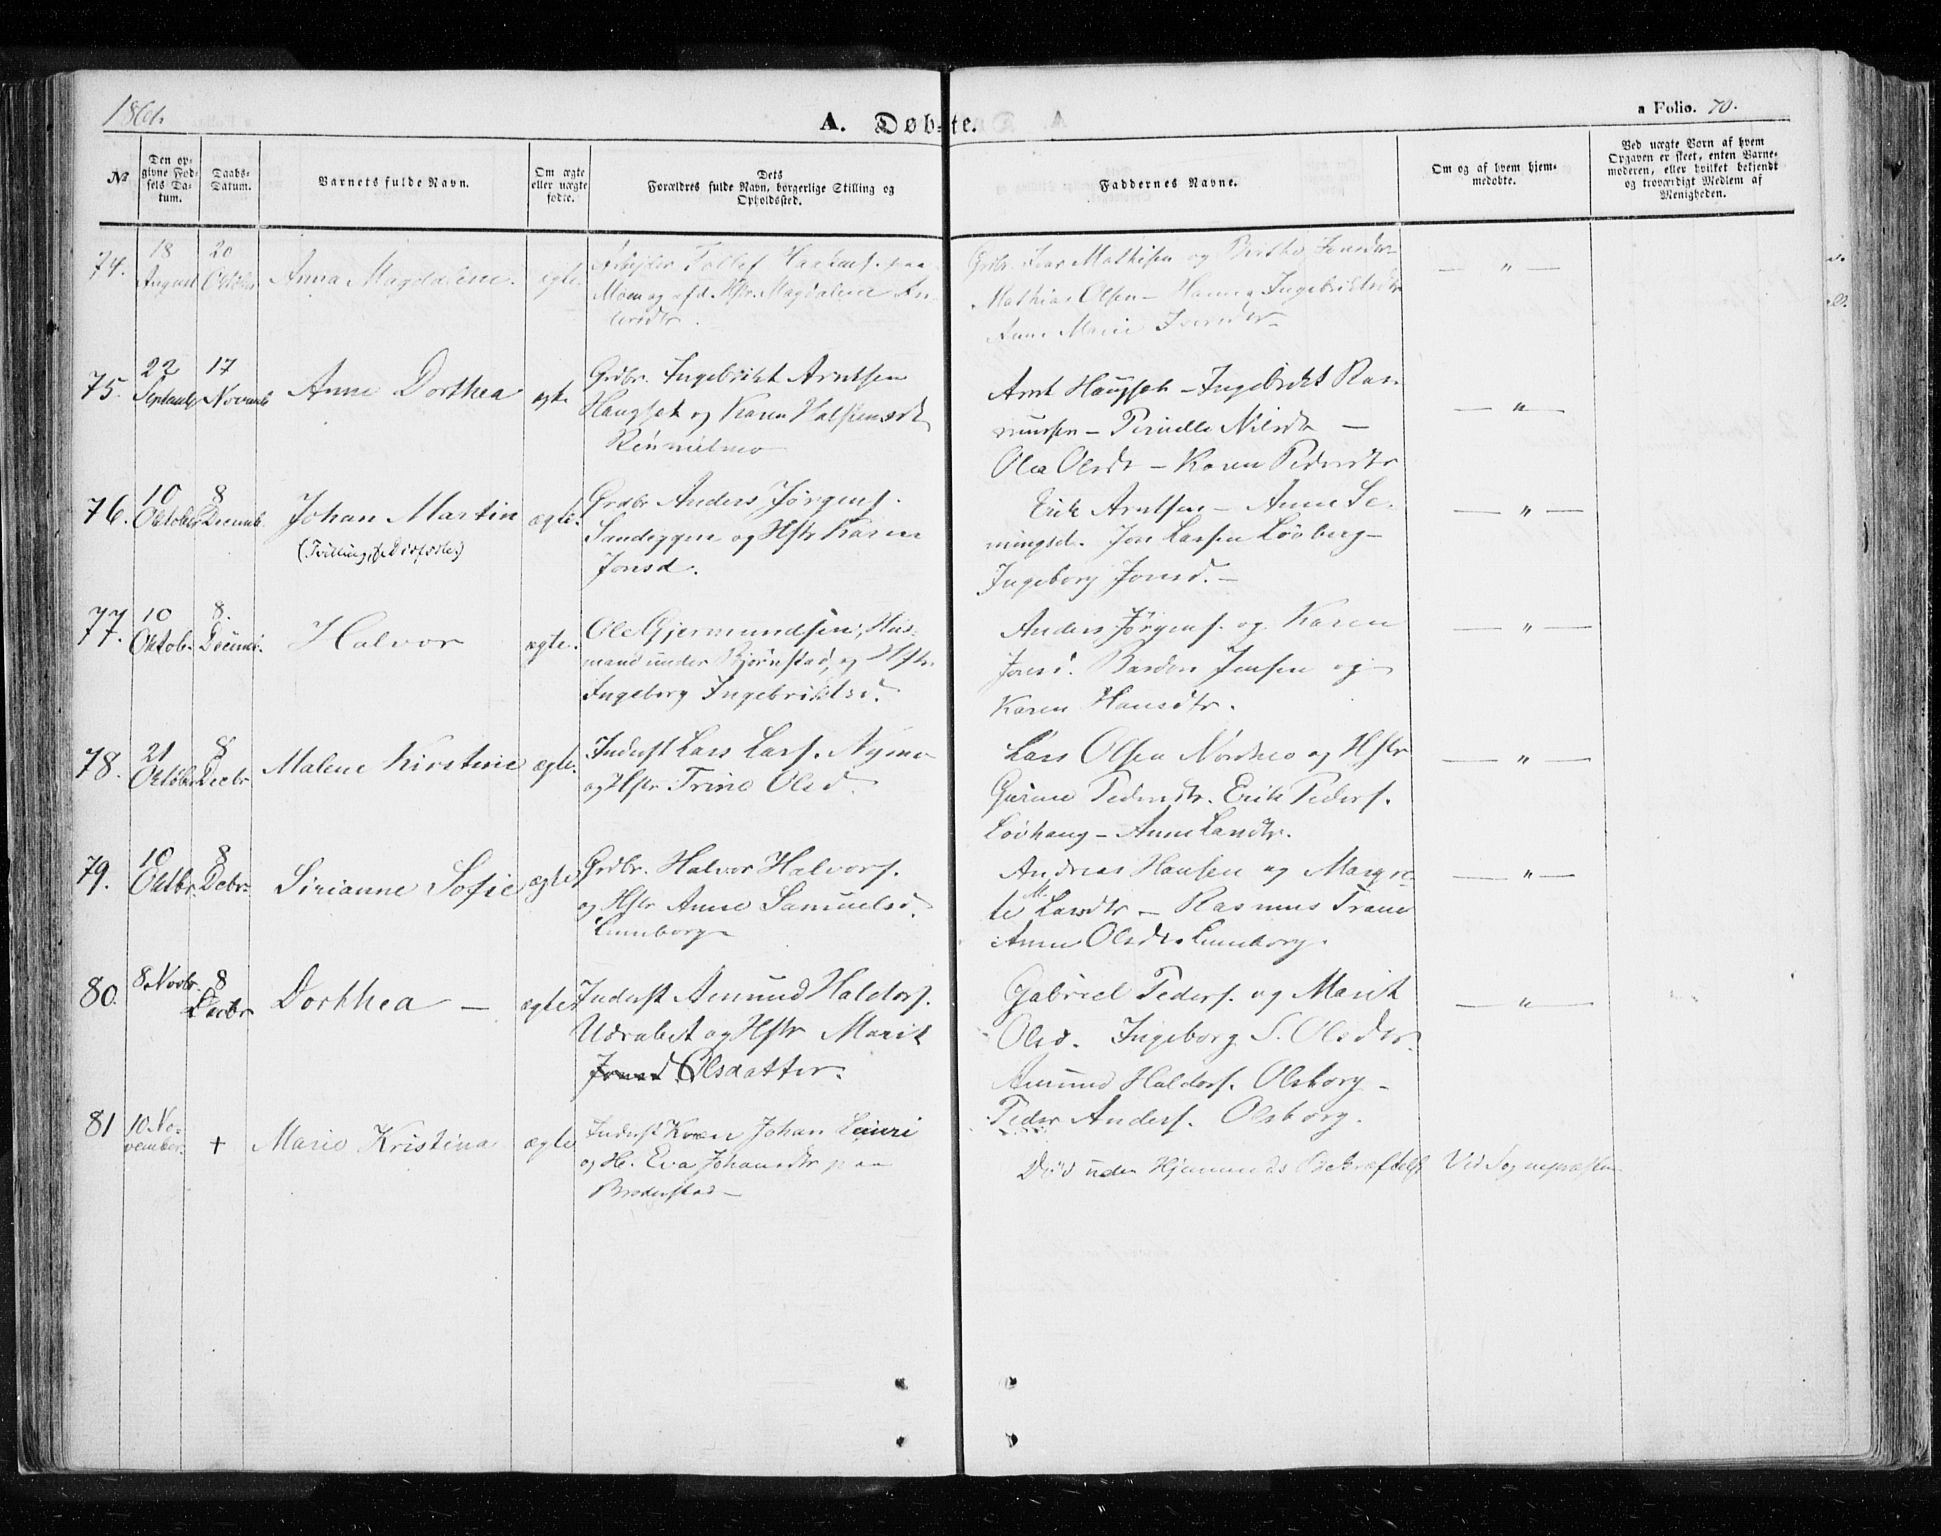 1861.
A. Døbte.
a Folio. 70.
No
Den opgivne Fødsels Datum.
Daabs-Datum.
Barnets fulde Navn.
Om ægte eller uægte fødte.
Dets Forældres fulde Navn, borgerlige Stilling og Opholdssted.
Faddernes Navne.
Om og af hvem hjemmedøbte.
Ved uægte Børn af hvem Opgaven er skeet, enten Barnemoderen, eller hvilket bekjendt og troværdigt Medlem af Menigheden.
74. 18 August 20 Oktober Anna Magdalene. ægte.
Arbejder Tollef
Moen og afd. Hstr. Magdalene
Mathisen og Jonsdtr
Mathias Olsen – Hanna Ingebriktsdtr
Anne Marie Iversdtr
— " —
75. 22 Septemb 17 Novemb Anne Dorthea ægte
Grdbr. Ingebrikt Arntsen
Haugset og Karen
Arnt Haugset – Ingebrikt Ras-
mussen – Pernelle Nilsdtr —
Olea Olsdt – Karen Pedersdtr
— " —
76. 10 Oktober 8 Decemb. Johan Martin ægte.
(Tvilling,
Grdbr Anders Jørgens.
Sandeggen og Hstr Karen
Jonsd.
Erik Arntsen – Anne Se-
mingsd. Jon Larsen Løvberg –
Ingeborg Jonsd. –
— " —
77. 10 Oktob. 8. Decemb. Halvor ægte.
Ole Gjermundsen, Hus-
mand under Bjørnstad, og Hstr.
Ingeborg Ingebriktsd.
Anders Jørgens. og Karen
Jonsd. Bardon Jensen og
Karen Hansdtr.
— " —
78. 21 Oktober 8 Decbr Malene Kirstine ægte.
Inderst Lars Lars. Nymo
og Hstr Trine Olsd.
Lars Olsen Nordmo og Hstr
Gurine Pedersdtr. Erik Peders.
Løvhaug – Anne Larsdtr.
— " —
79. 10 Oktbr. 8 Decbr. Sirianne Sofie ægte
Grdbr. Halvor Halvors.
og Hstr Anne Samuelsd.
Lunneborg
Andreas Hansen og Margre-
te M. Larsdtr – Rasmus
Anne Olsdtr Lunneborg.
— " —
80. 8 Novbr. 8 Decbr Dorthea — ægte
Inderst Amund Haldors.
og Hstr Marit
Jonsd Olsdatter.
Gabriel Peders. og Marit
Olsd. Ingeborg S. Olsdtr.
Amund Haldors. Olsborg –
Peder Anders. Olsborg.
— " —
81 10 No-
vember. + Marie Kristina ægte
Inderst Kvæn Johan Lauri
og H. Eva Johansdtr paa
Brøderstad –
Død uden Hjemmed. Bekræftelse Ved Sognepræsten